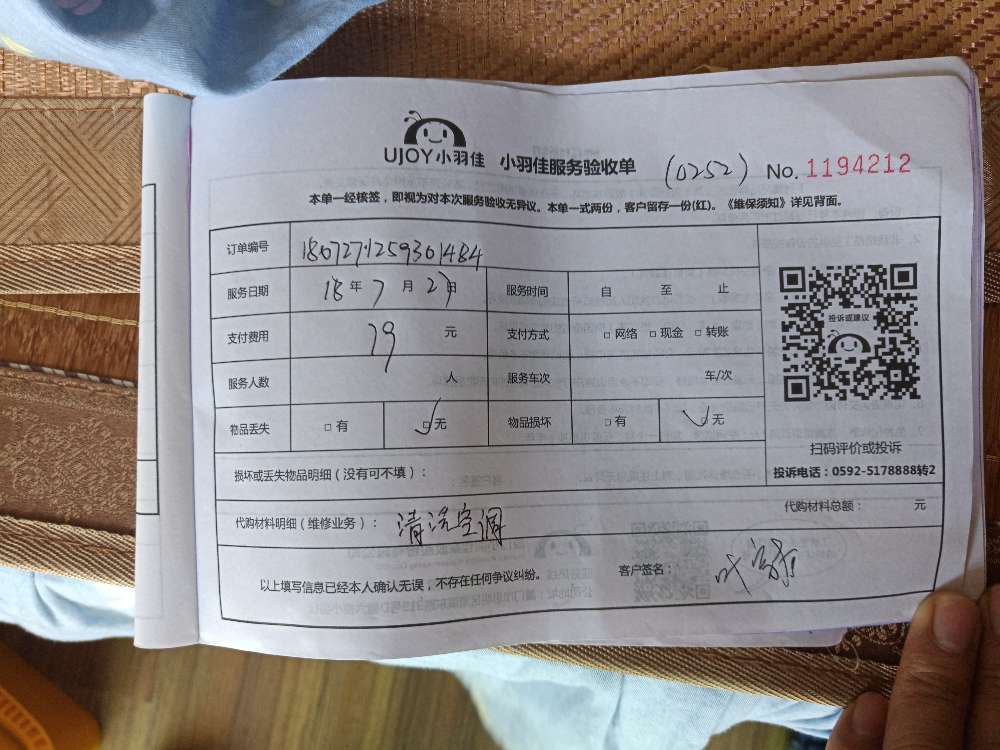 UJOY小羽佳 小羽佳服务验收单 (0252) No. 1194212
本单一经核签，即视为对本次服务验收无异议。本单一式两份，客户留存一份(红)。《维保须知》详见背面。
订单编号 1807271259301484
服务日期 18年7月29日 服务时间 自 至 止
支付费用 79 元 支付方式 □网络 □现金 □转账
服务人数 人 服务车次 车/次
物品丢失 □有 ☑无 物品损坏 □有 ☑无
投诉或建议
扫码评价或投诉
投诉电话：0592-5178888转2
损坏或丢失物品明细（没有可不填）：
代购材料明细（维修业务）： 清洗空调 代购材料总额： 元
以上填写信息已经本人确认无误，不存在任何争议纠纷。 客户签名： 叶